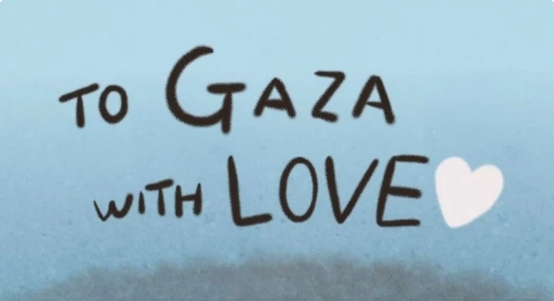 TO GAZA
WITH LOVE